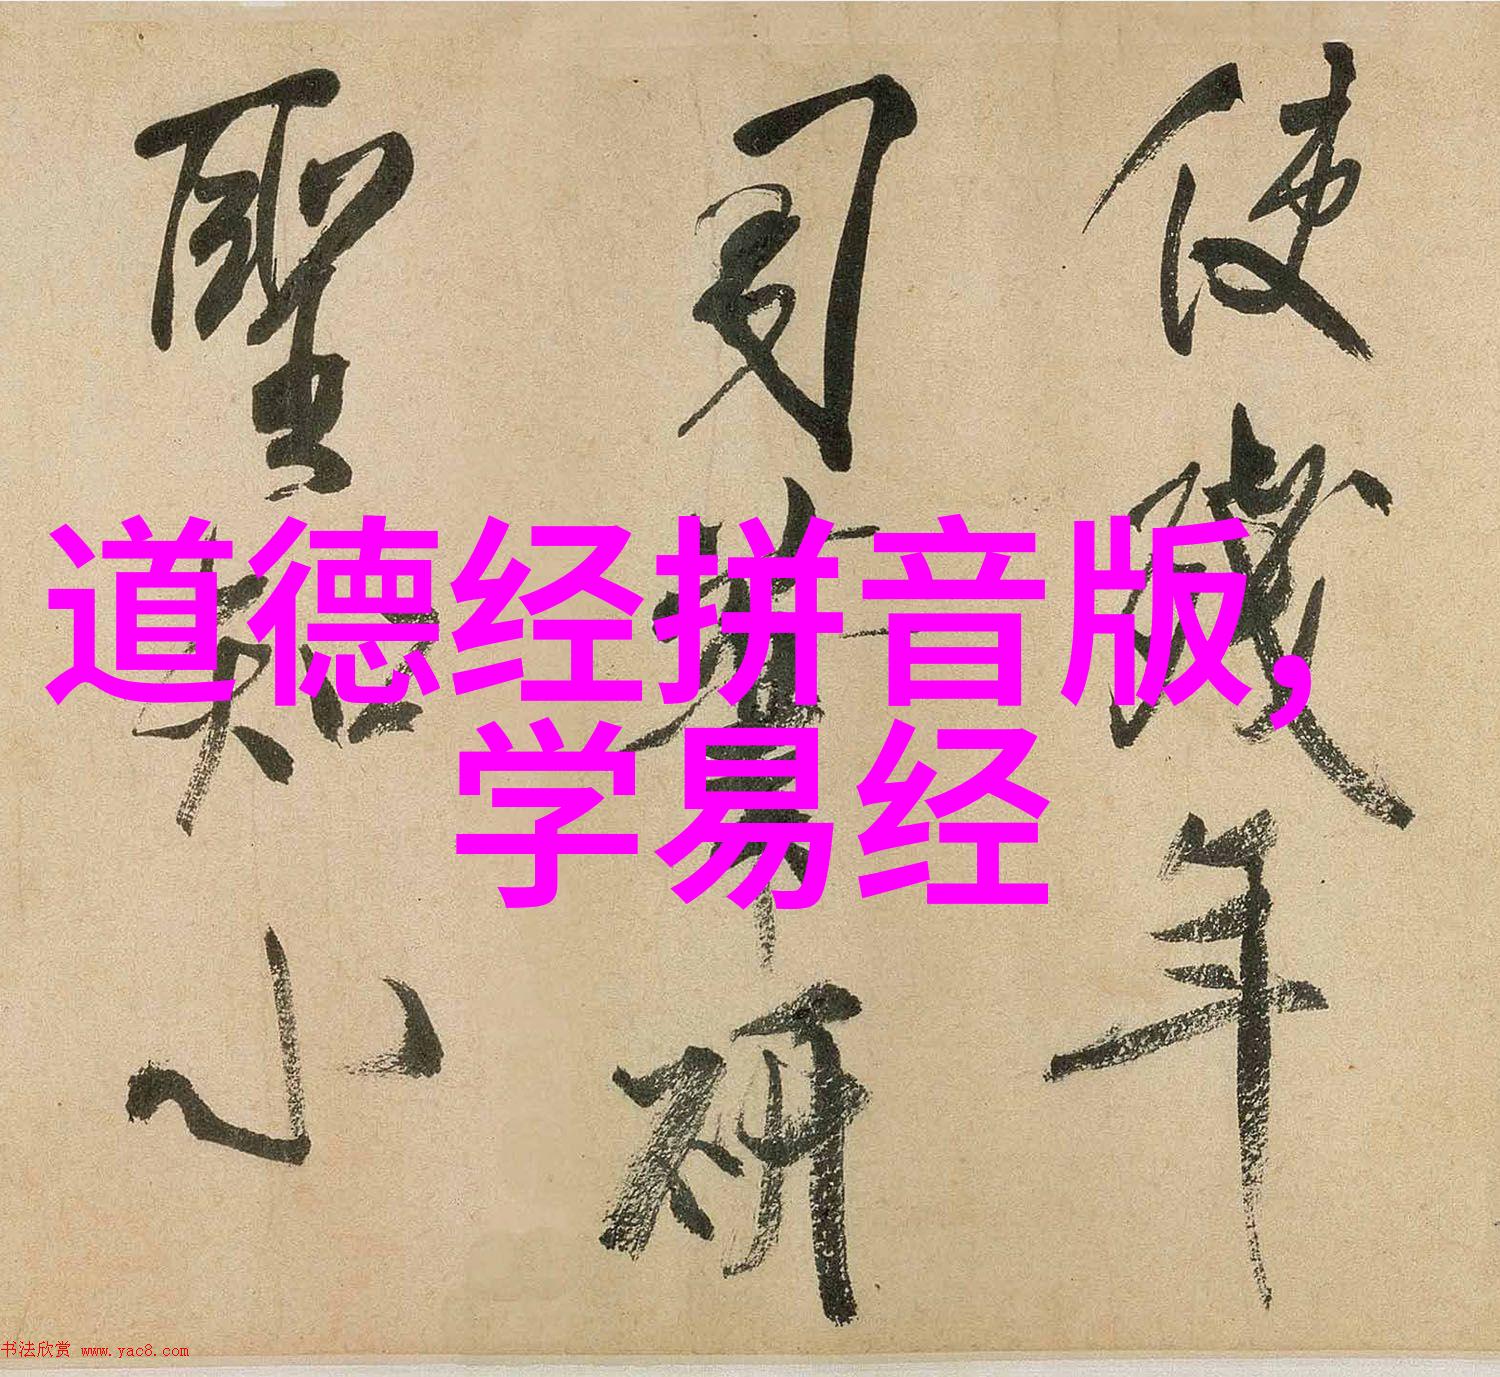 道德经拼音版,
学易经
使殘年
研
聖知小
书法欣赏 www.yac8.com